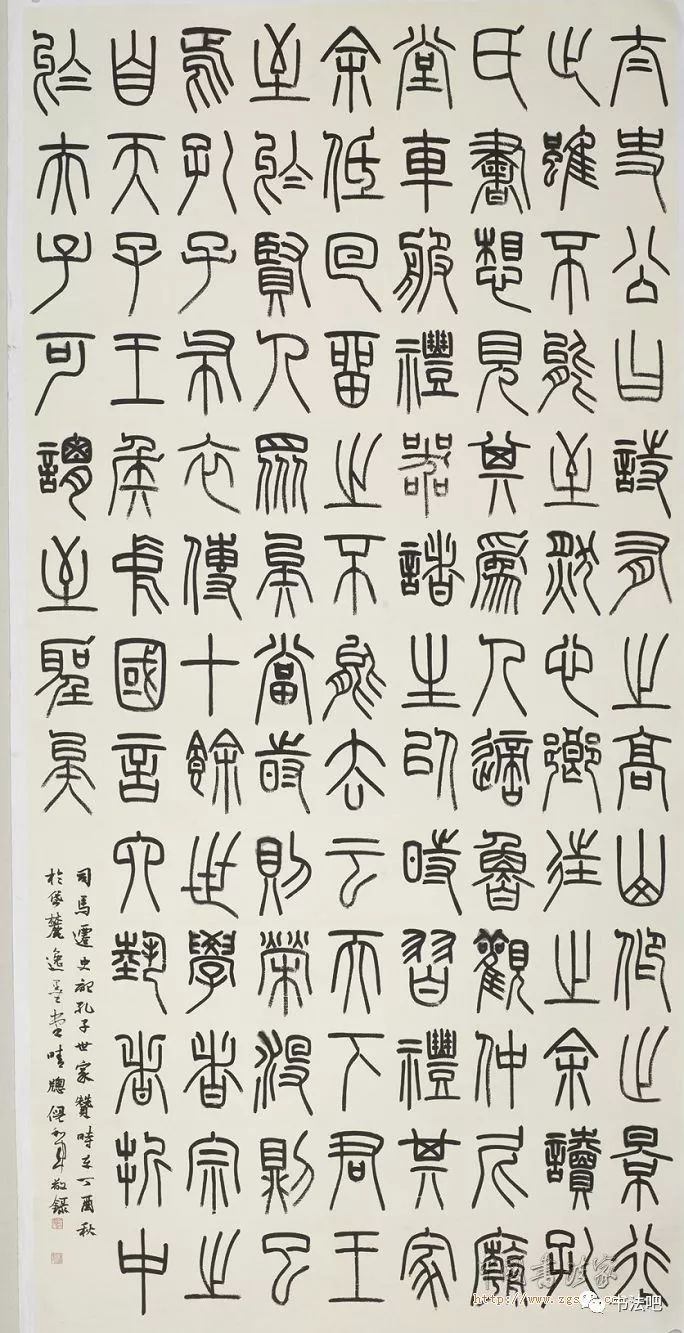 太史公曰詩有之高山仰止景行
止雖不能至然心鄉往之余讀孔
氏書想見其爲人適魯觀仲尼廟
堂車服禮器諸生以時習禮其家
余低回留之不能去云天下君王
至於賢人眾矣當時則榮沒則已
焉孔子布衣傳十餘世學者宗之
自天子王侯中國言六藝者折中
於夫子可謂至聖矣
司馬遷史記孔子世家贊時在丁酉秋
於岱麓逸墨堂晴窗敬錄
书法吧